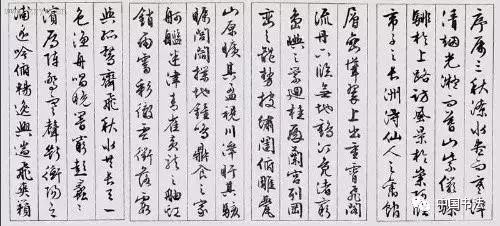 序屬三秋潦水盡而寒潭
清烟光凝而暮山紫儼驂
騑於上路訪風景於崇阿臨
帝子之長洲得仙人之舊館
層巒聳翠上出重霄飛閣
流丹下臨無地鶴汀鳧渚窮
島嶼之縈迴桂殿蘭宮列岡
巒之體勢披繡闥俯雕甍
山原曠其盈視川澤盱其駭
矚閭閻撲地鐘鳴鼎食之家
舸艦迷津青雀黃龍之舳虹
銷雨霽彩徹雲衢落霞
與孤鶩齊飛秋水共長天一
色漁舟唱晚響窮彭蠡之
濱雁陣驚寒聲斷衡陽之
浦遥吟俯暢逸興遄飛爽籟
中国书法